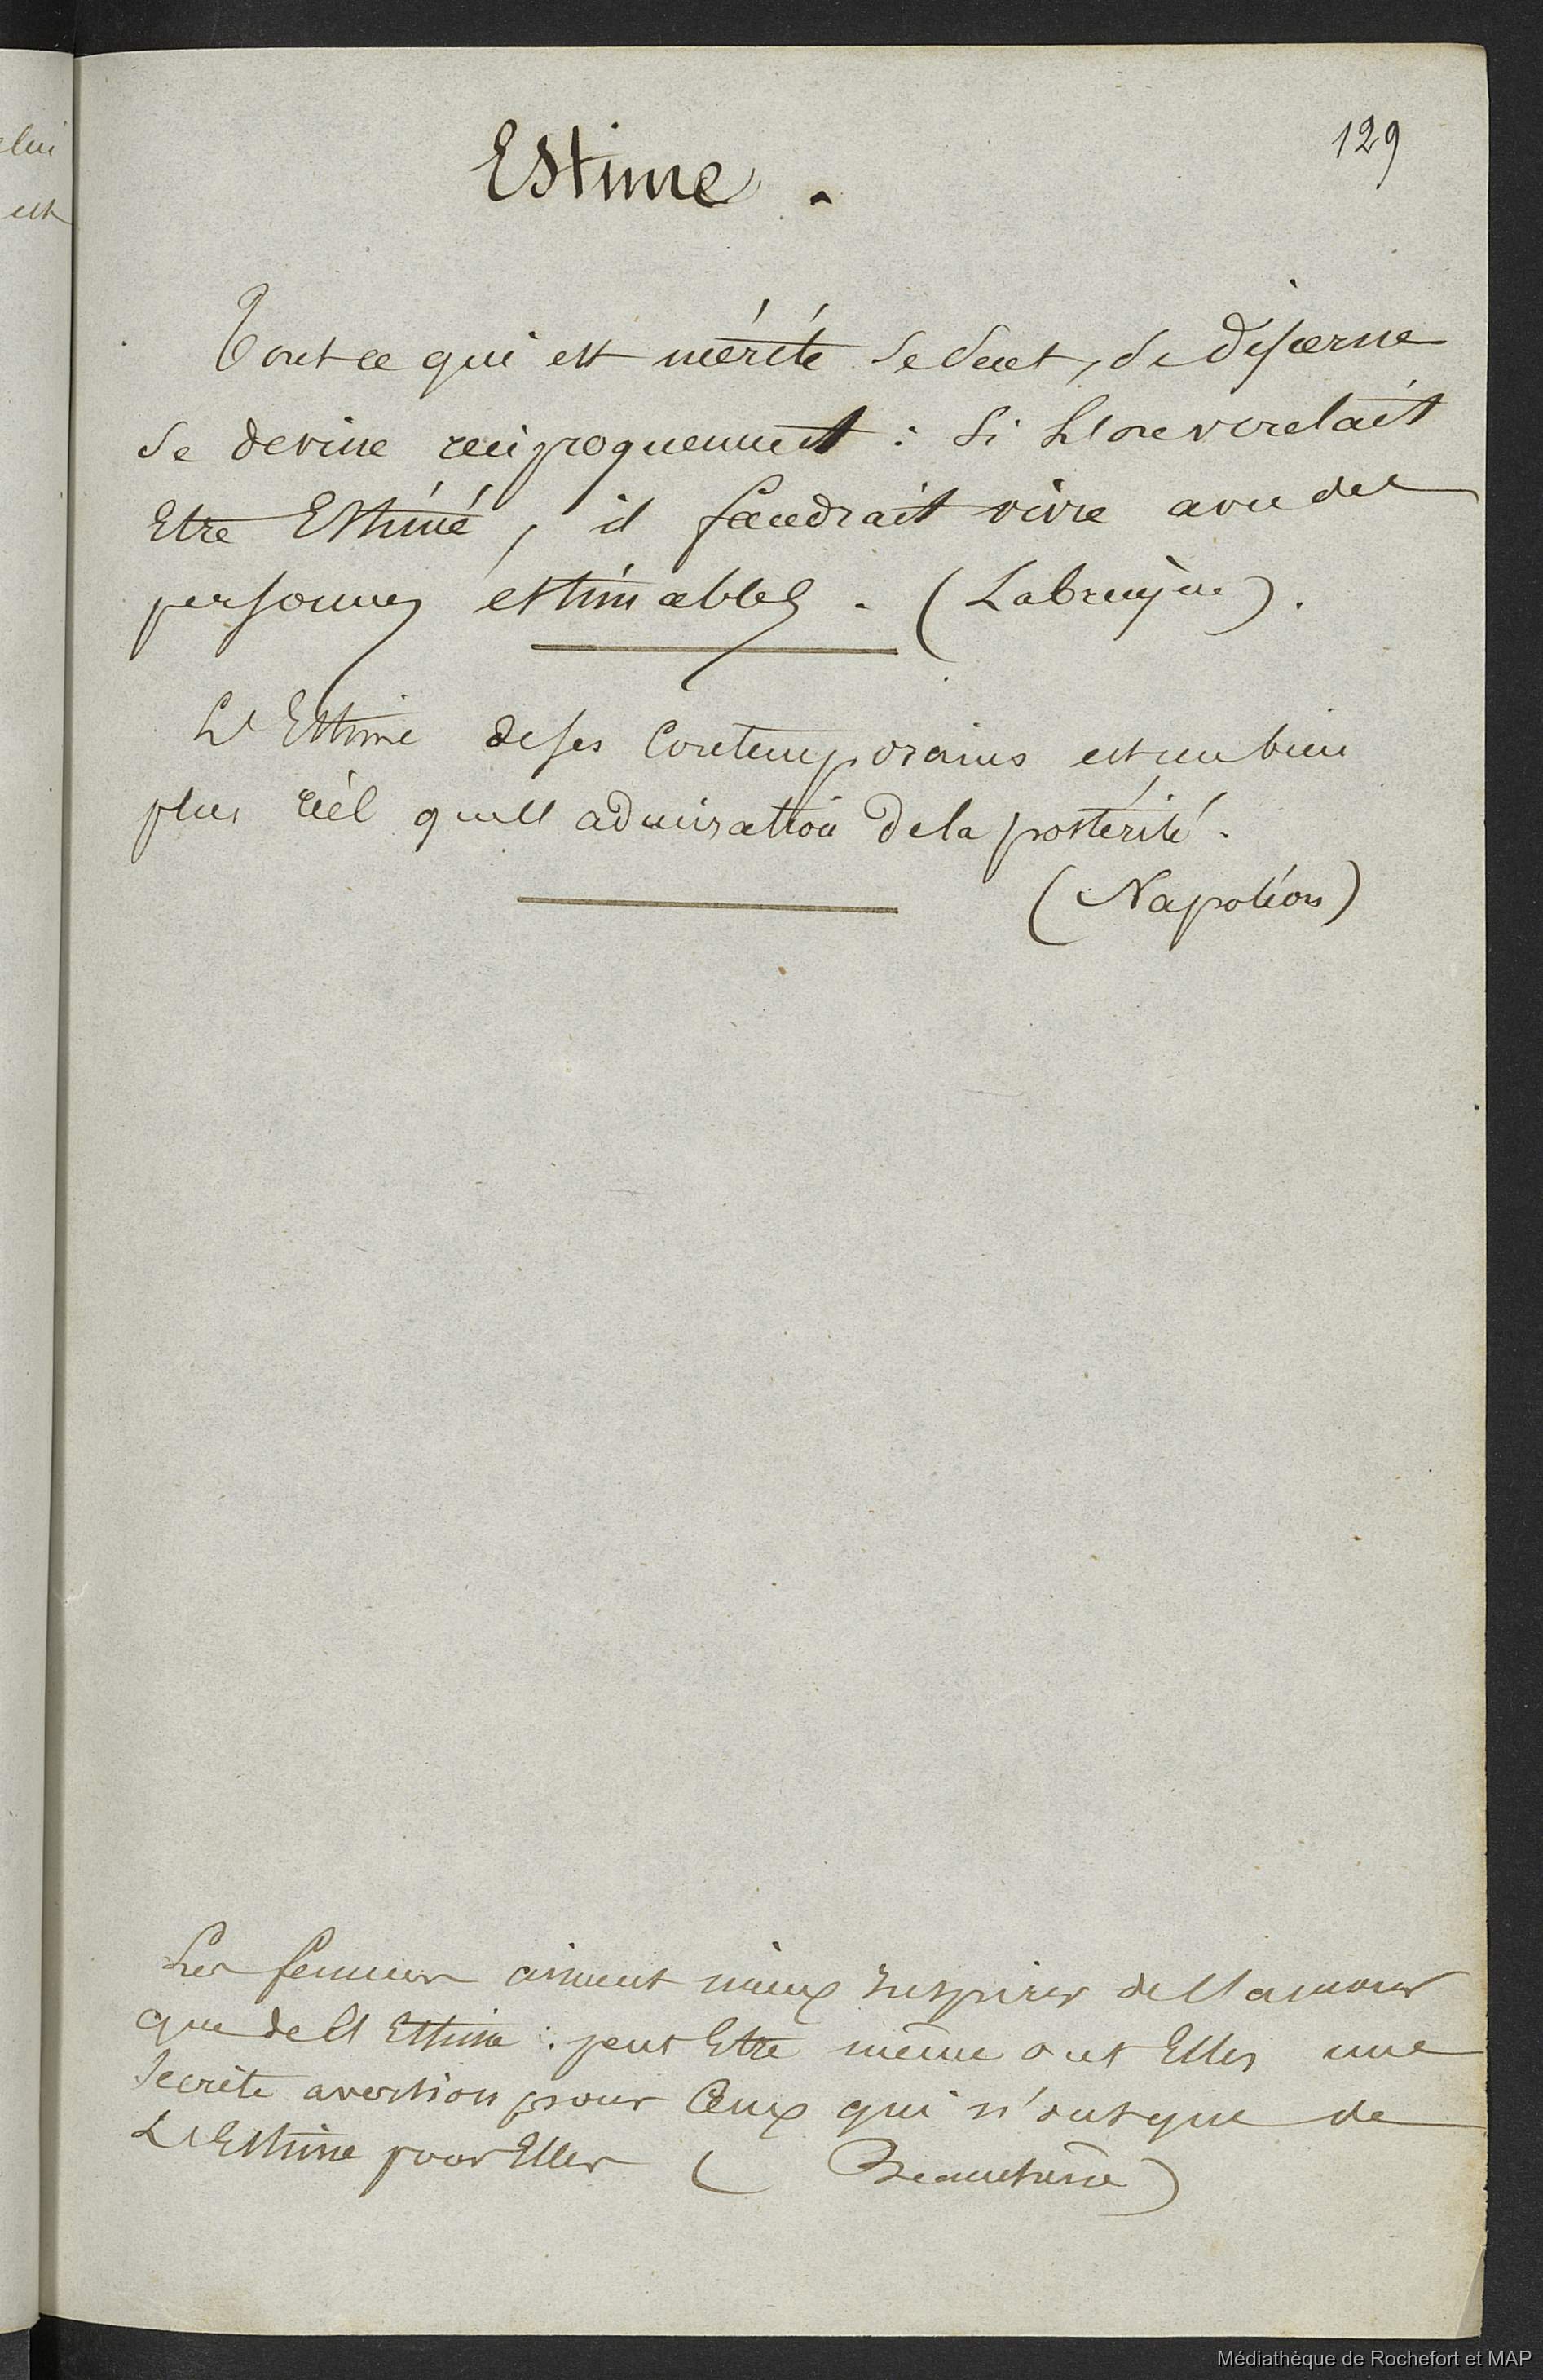 elui
est
129
Estime.
Tout ce qui est mérité se sent, se discerne
se devine réciproquement : si L'on voulait
Etre Estimé, il faudrait vivre avec des
personnes estimables. (Labruyère).
L'Estime de ses Contemporains est un bien
plus réel que l'admiration de la postérité.
(Napoléon)
Les femmes aiment mieux inspirer de l'amour
que de l'Estime : peut Etre même ont Elles une
secrète aversion pour Ceux qui n'ont que de
L'Estime pour Elles (Beauchêne)
Médiathèque de Rochefort et MAP